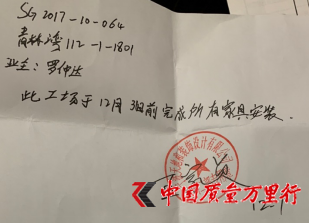 SG 2017-10-064
青林湾 112-1-1801
业主:罗仲达
此工场于12月3日前完成所有家具安装.
装饰设计有限公司
中国质量万里行